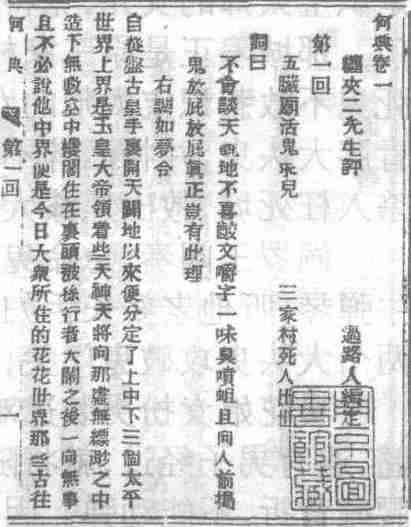 何典卷一
纏夾二先生評 過路人編定
第一回
五臟廟活鬼求兒 三家村死人出世
詞曰
不會談天說地不喜齩文嚼字一味臭噴蛆且向人前搗
鬼放屁放屁眞正豈有此理
右調如夢令
自從盤古皇手裏開天闢地以來便分定了上中下三個太平
世界上界是玉皇大帝領着些天神天將向那虛無縹渺之中
造下無數空中樓閣住在裏頭被孫行者大鬧之後一向無事
且不必說他中界便是今日大衆所住的花花世界那些古往
何典 第一回 一
圖
書館藏